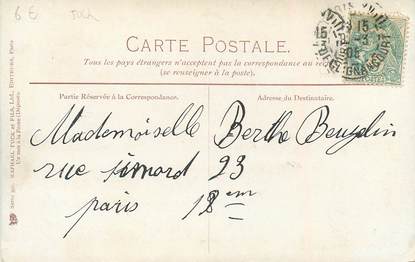 6 E TUCK
CARTE POSTALE.
Tous les pays étrangers n'acceptent pas la correspondance au re
(se renseigner à la poste).
Partie Réservée à la Correspondance.
Adresse du Destinataire.
Mademoiselle Berthe Beuzelin
rue simard 23
paris 18em
RAPHAEL TUCK et FILS, Ld., EDITEURS, Paris